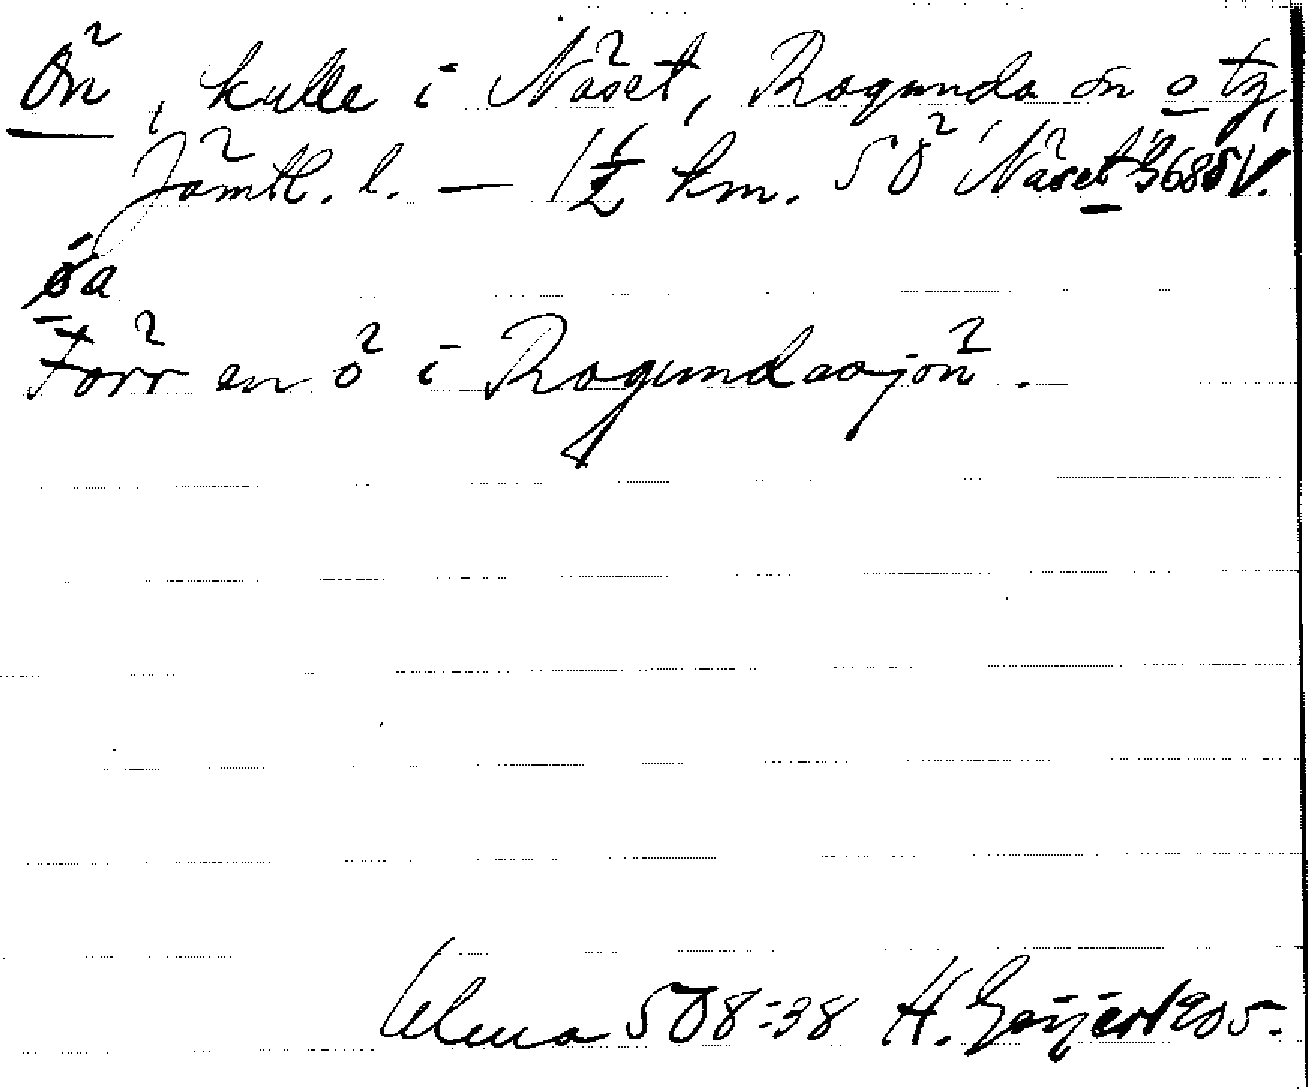 Ön, kulle i Näset, Ragunda sn o tg,
Jämtl. l. — 1 1/2 km. SÖ Näset 3685 V.
öa
Förr en ö i Ragundasjön.
Ulma 508:38 H. Geijer 1905.